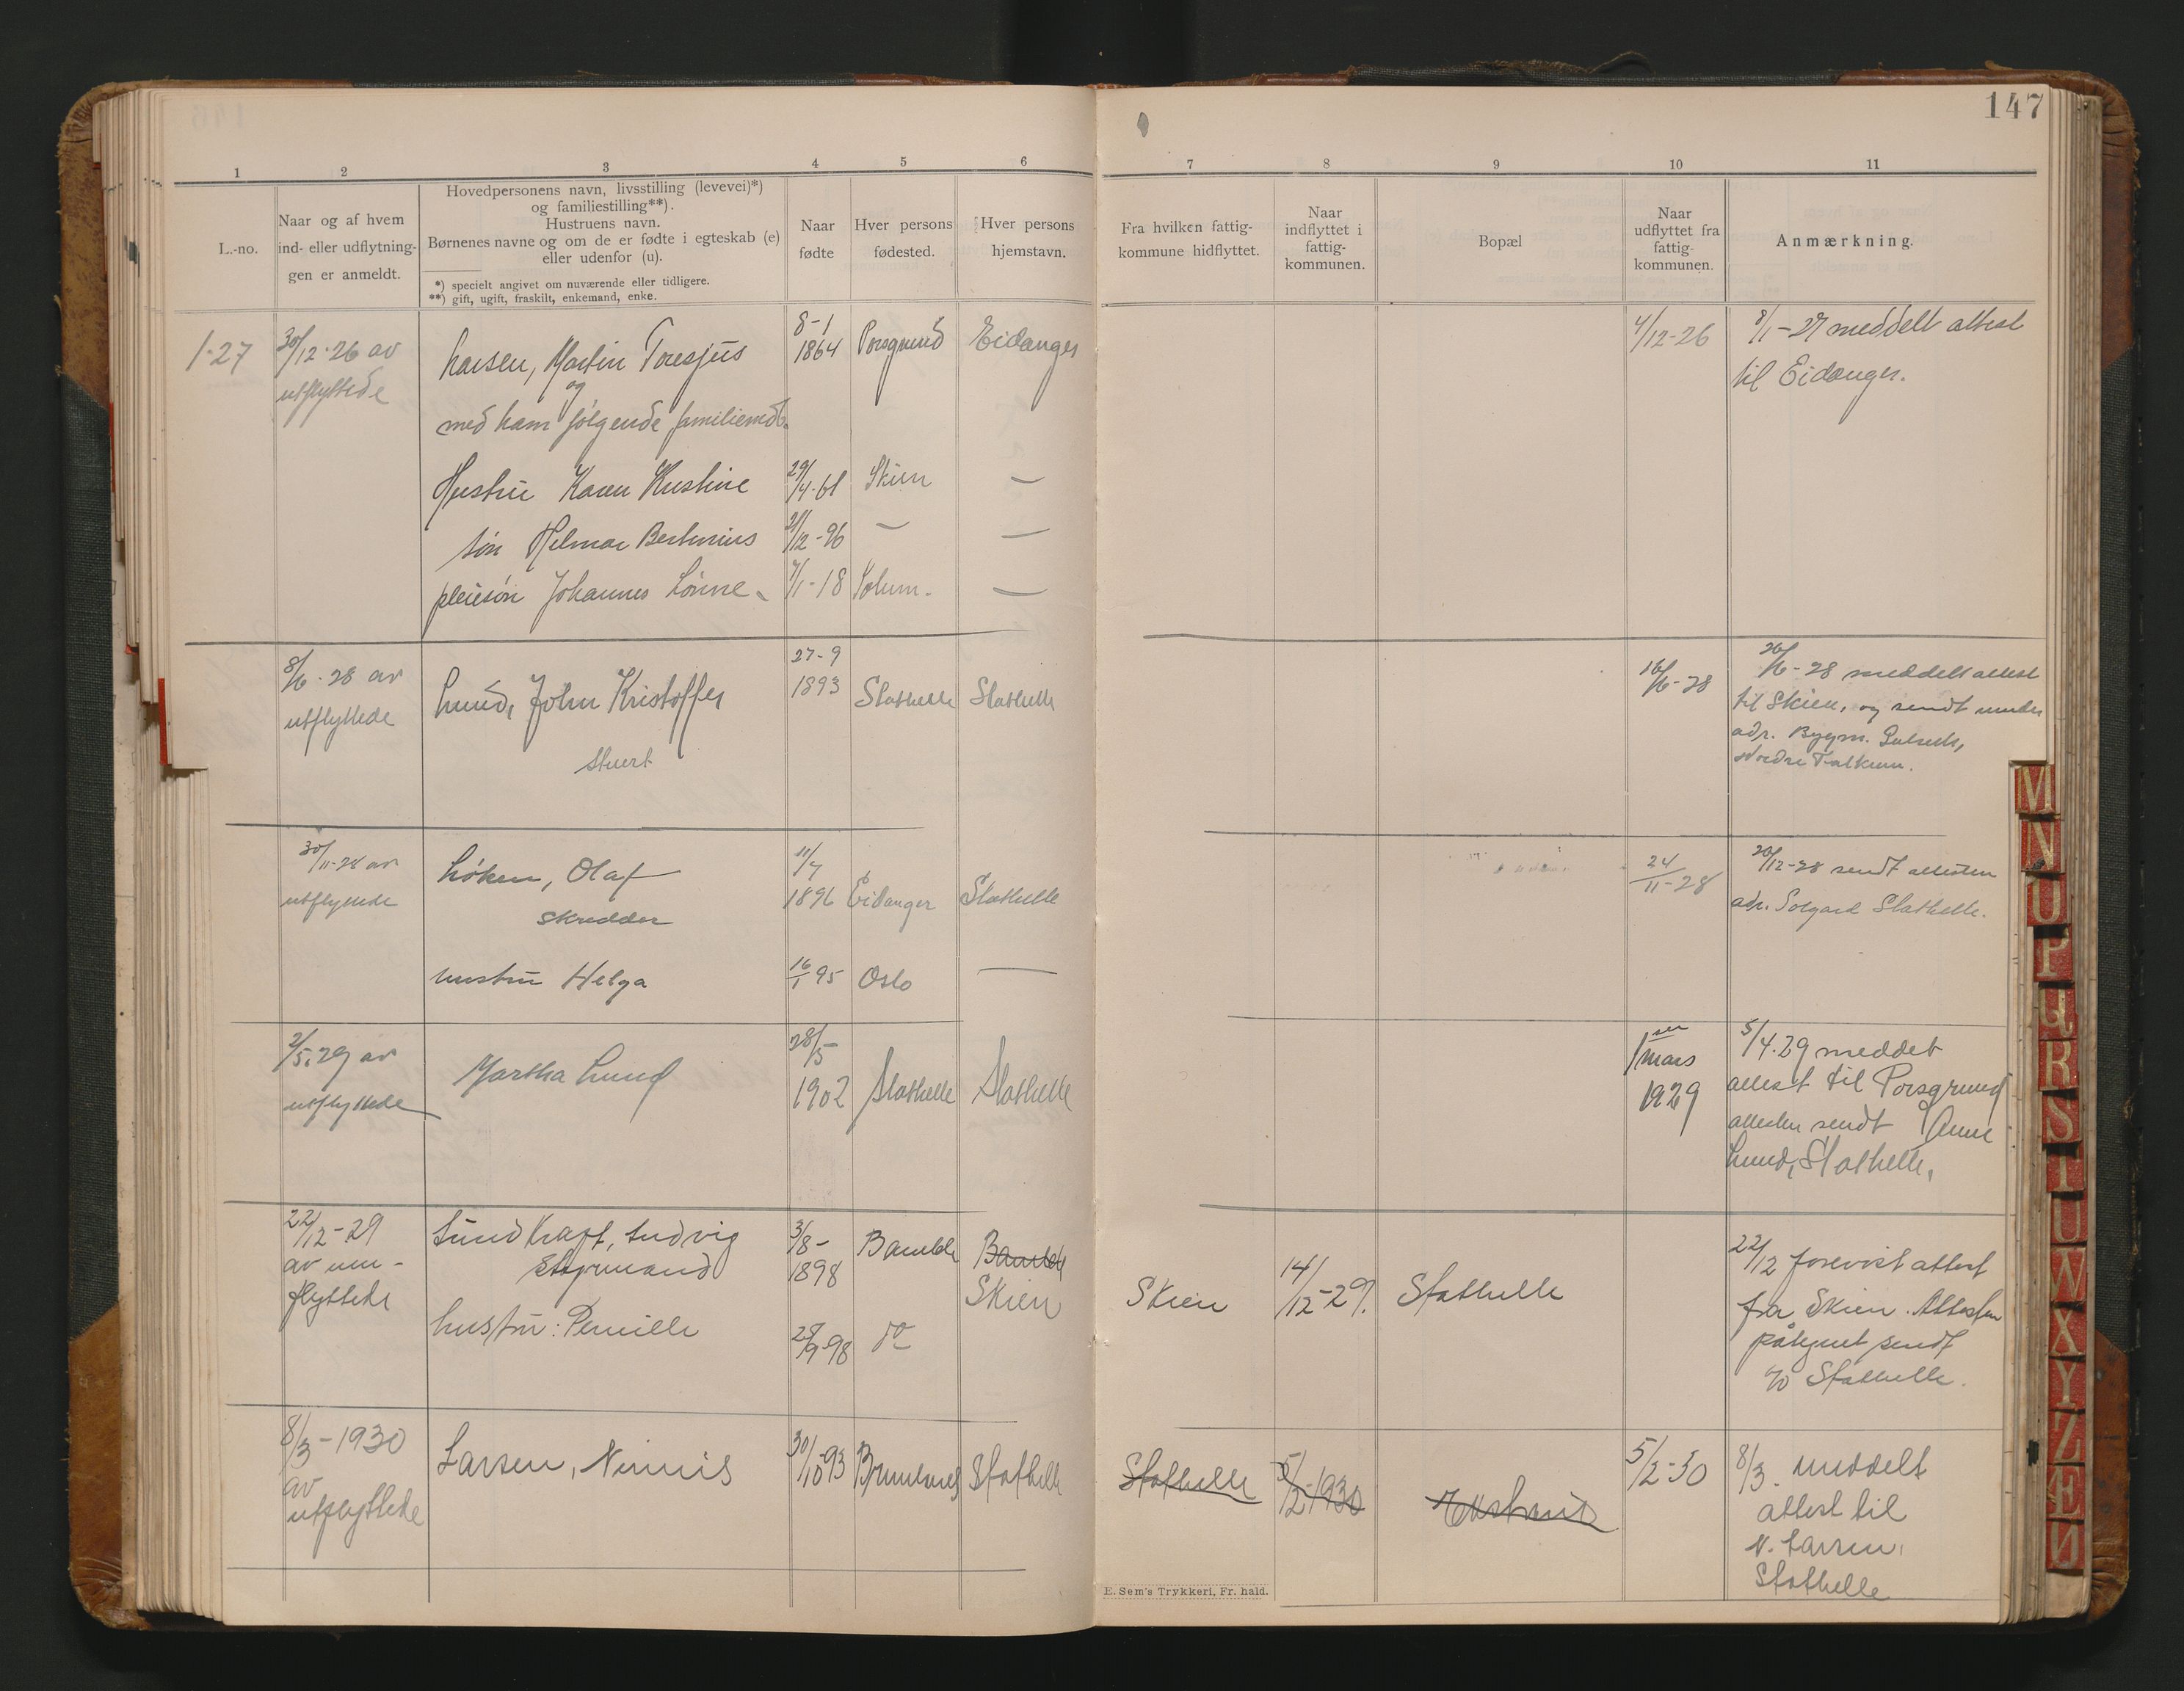 147
1 2 3 4 5 6 7 8 9 10 11
L.-no.
Naar og af hvem
ind- eller udflytnin-
gen er anmeldt.
Hovedpersonens navn, livsstilling (levevei)*)
og familiestilling**).
Hustruens navn.
Børnenes navne og om de er fødte i egteskab (e)
eller udenfor (u).
*) specielt angivet om nuværende eller tidligere.
**) gift, ugift, fraskilt, enkemand, enke.
Naar
fødte
Hver persons
fødested.
Hver persons
hjemstavn.
Fra hvilken fattig-
kommune hidflyttet.
Naar
indflyttet i
fattig-
kommunen.
Bopæl
Naar
udflyttet fra
fattig-
kommunen.
Anmærkning.
1-27
30/12-26 av
utflyttede
Larsen, Martin Toresjus
og
med ham følgende familiemdl.
8-1
1864
Porsgrund
Eidanger
4/12-26
8/1-27 meddelt attest
til Eidanger.
Hustru Karen Kristine
29/4-61
Skien
—
søn Hilmar Bertinius
21/12-96
—
—
pleiesøn Johannes Lønne
7/1-18
Solum.
—
8/6-28 av
utflyttede
Lund, John Kristoffer
stuert
27-9
1893
Stathelle
Stathelle
16/6-28
26/6-28 meddelt attest
til Skien, og sendt under
adr. Bygm.
Nordre Falkum.
30/11-28 av
utflyttede
Løken, Olaf
skredder
11/7
1896
Eidanger
Stathelle
24/11-28
20/12-28 sendt attesten
adr. Solgard Stathelle.
hustru Helga
16/1 95
Oslo
—
2/5.29 av
utflyttede
Martha Lund
28/5-
1902
Stathelle
Stathelle
1 mars
1929
5/4.29 meddelt
attest til Porsgrund
attesten sendt Anne
Lund, Stathelle.
22/12-29
av inn-
flyttede
Sundkraft, Ludvig
Styrmand
3/8-
1898
Bamble
Bamble
Skien
Skien
14/12-29.
Stathelle
22/12 forevist attest
fra Skien. Attesten
påtegnet sendt
Stathelle.
hustru: Pernille
25/9-98
do
8/3-1930
av
utflyttede
Larsen, Nimis
30/10-93
Stathelle
Stathelle
5/2-1930
5/2-30
8/3. meddelt
attest til
N. Larsen,
Stathelle
E. Sem's Trykkeri, Fr. hald.
M
N
U
P
Q
R
S
T
U
W
X
Y
Z
Æ
Ø